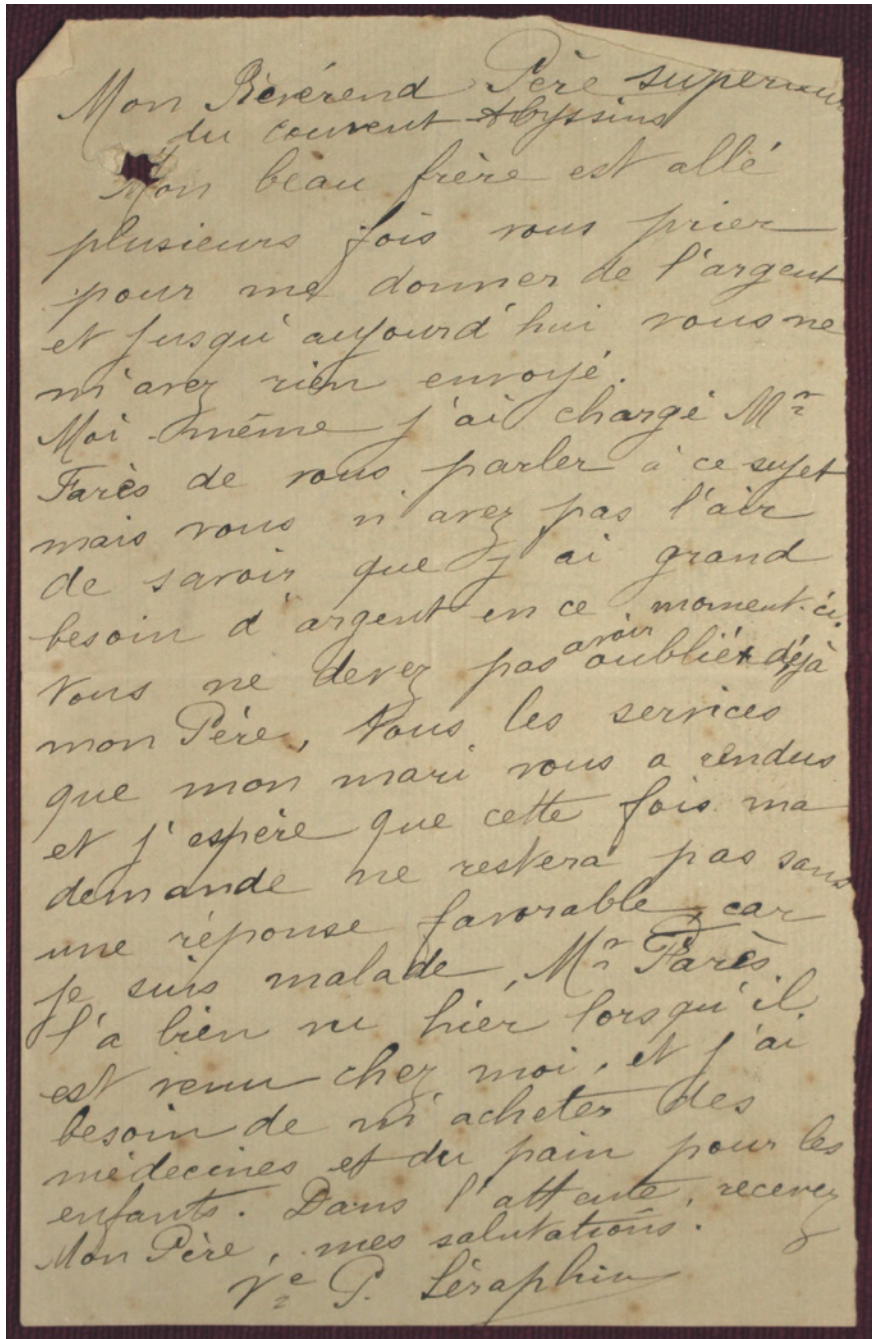 Mon Révérend Père superieur
du couvent Abyssins
Mon beau frère est allé
plusieurs fois vous prier
pour me donner de l'argent
et jusqu'aujourd'hui vous ne
m'avez rien envoyé.
Moi-même j'ai chargé Mr
Farès de vous parler à ce sujet
mais vous n'avez pas l'air
de savoir que j'ai grand
besoin d'argent en ce moment-ci.
Vous ne devez pas avoir oublié déjà
mon Père, tous les services
que mon mari vous a rendus
et j'espère que cette fois ma
demande ne restera pas sans
une réponse favorable, car
je suis malade, Mr Farès
l'a bien vu hier lorsqu'il
est venu chez moi, et j'ai
besoin de m'acheter des
médecines et du pain pour les
enfants. Dans l'attente, recevez
Mon Père, mes salutations.
Ve P. Séraphin